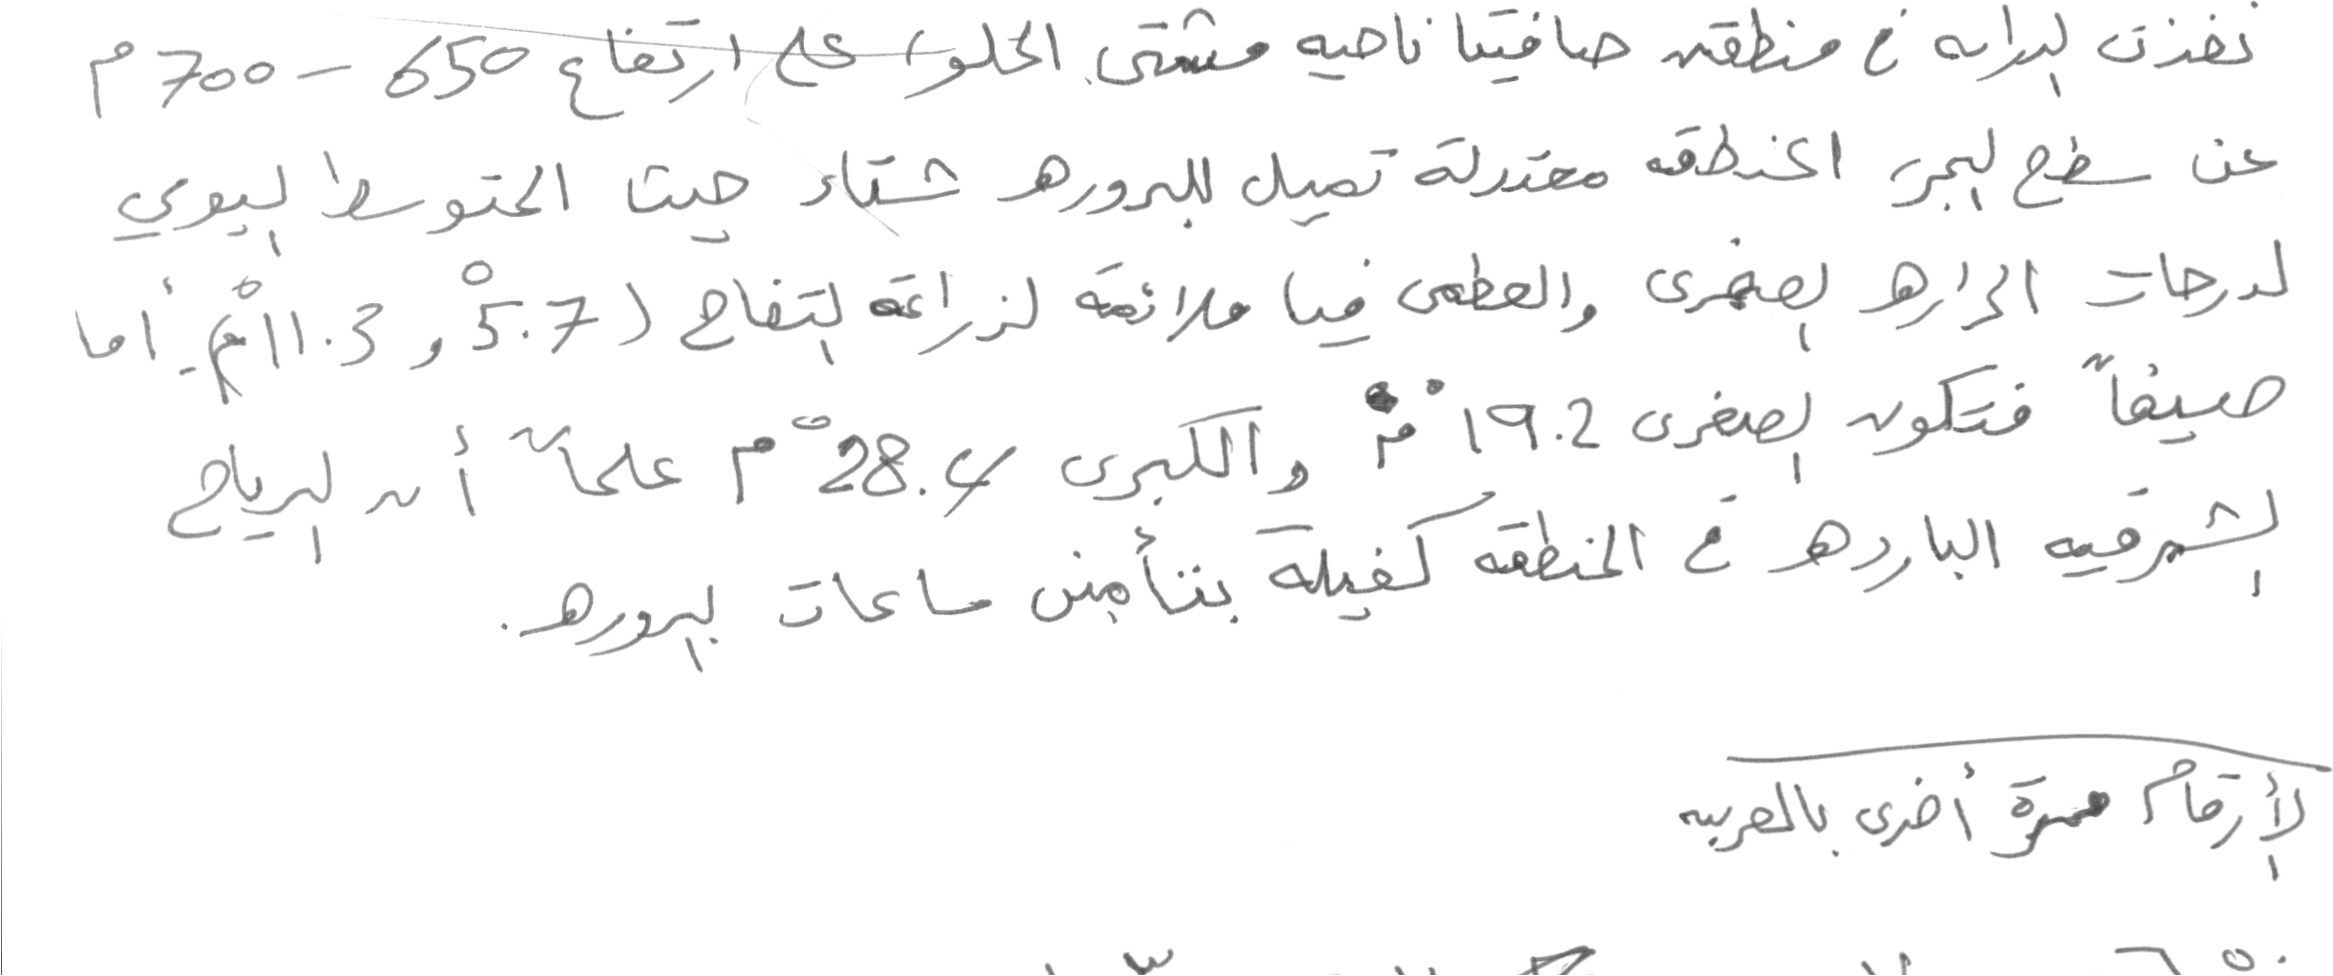 نفذت الدراسة في منطقة صافيتا ناحية مشتى الحلو، على ارتفاع 650 - 700 م
عن سطح البحر المنطقة معتدلة تميل للبرودة شتاء حيث المتوسط اليومي
لدرجات الحرارة الصغرى والعظمى فيها ملائمة لزراعة التفاح (5.7° و 11.3°م). أما
صيفاً فتكون الصغرى 19.2°م والكبرى 28.4°م علماً أن الرياح
الشرقية الباردة في المنطقة كفيلة بتأمين ساعات البرودة.
الأرقام مرة أخرى بالعربية